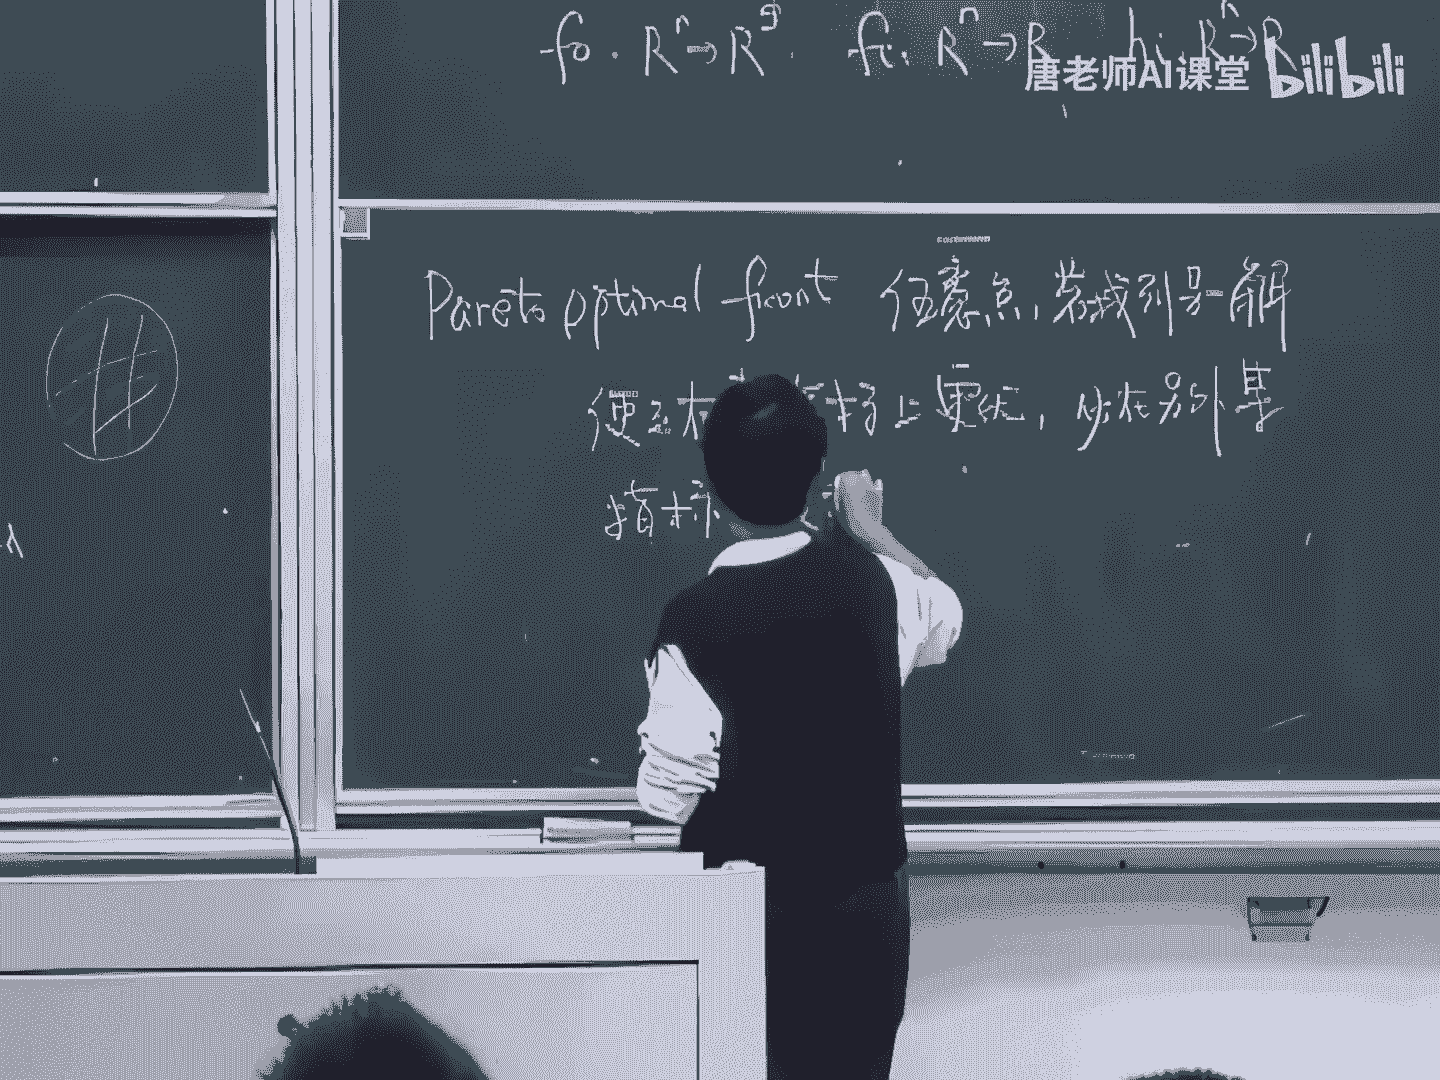 f₀: Rⁿ→R^q. fᵢ: Rⁿ→R hᵢ: Rⁿ→R
唐老师AI课堂 bilibili
Pareto optimal front 任意点,若找到另一解
使在 指标上更优, 必在另外某
指标
λ